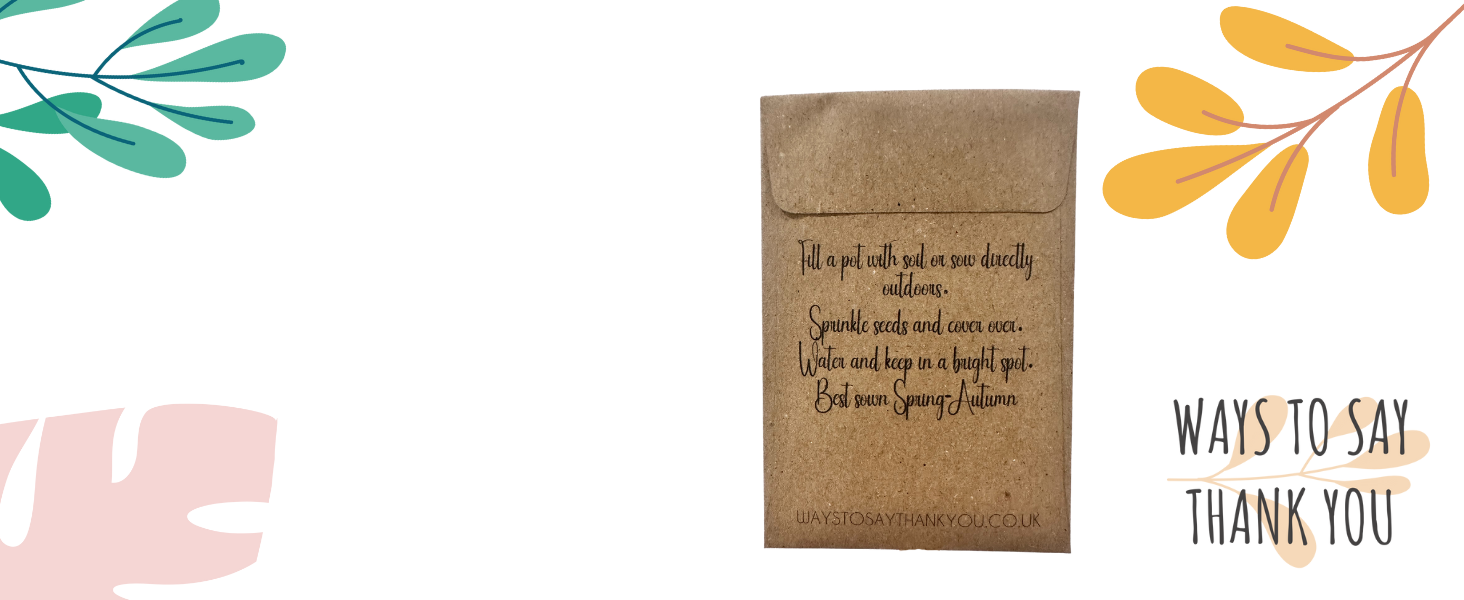 Fill a pot with soil or sow directly
outdoors.
Sprinkle seeds and cover over.
Water and keep in a bright spot.
Best sown Spring-Autumn
WAYSTOSAYTHANKYOU.CO.UK
WAYS TO SAY
THANK YOU